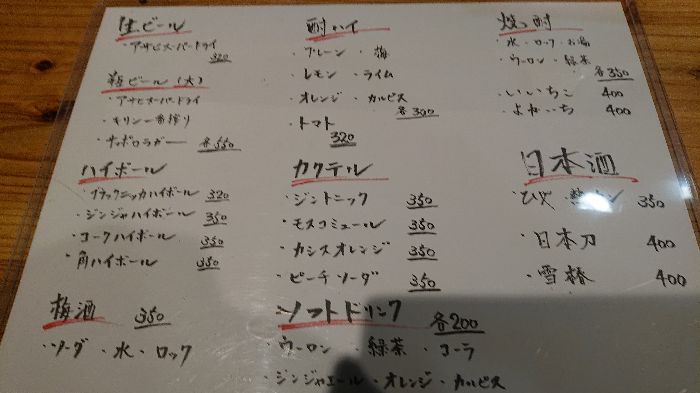 生ビール
・アサヒスーパードライ
320
瓶ビール(大)
・アサヒスーパードライ
・キリン一番搾り
・サッポロラガー 各550
ハイボール
・ブラックニッカハイボール 320
・ジンジャハイボール 350
・コークハイボール 350
・角ハイボール 350
梅酒 350
・ソーダ ・水 ・ロック
酎ハイ
・プレーン ・梅
・レモン ・ライム
・オレンジ ・カルピス
各300
・トマト
320
カクテル
・ジントニック 350
・モスコミュール 350
・カシスオレンジ 350
・ピーチソーダ 350
ソフトドリンク 各200
・ウーロン ・緑茶 ・コーラ
・ジンジャエール ・オレンジ ・カルピス
焼酎
・水 ・ロック ・お湯
・ウーロン ・緑茶
各350
・いいちこ 400
・よかいち 400
日本酒
・ひや 350
・日本刀 400
・雪椿 400